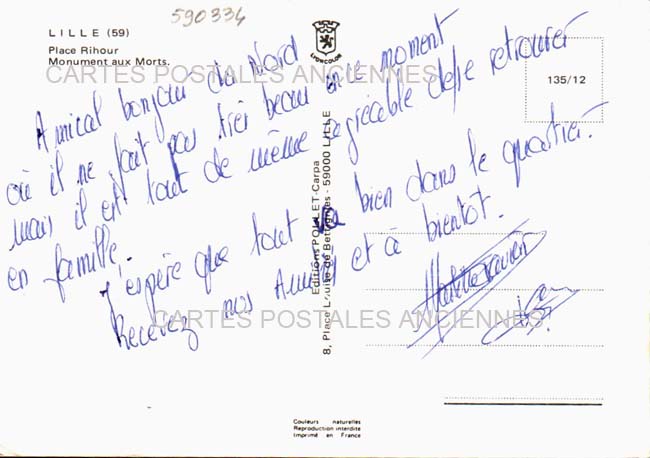 590334
LILLE (59)
Place Rihour
Monument aux Morts.
LYONCOLOR
135/12
CARTES POSTALES ANCIENNES
Amical bonjour du Nord
où il ne fait pas très beau en ce moment
mais il est tout de même agréable de se retrouver
en famille.
J'espère que tout va bien dans le quartier.
Recevez nos Amitiés et à bientôt.
Editions POULLET-Carpa
8, Place Louise de Bettignies - 59000 LILLE
CARTES POSTALES ANCIENNES
Couleurs naturelles
Reproduction interdite
Imprimé en France